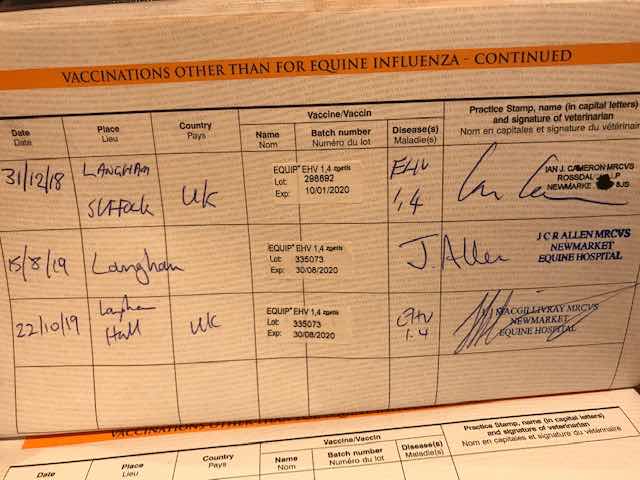 VACCINATIONS OTHER THAN FOR EQUINE INFLUENZA - CONTINUED
Date
Date
Place
Lieu
Country
Pays
Vaccine/Vaccin
Name
Nom
Batch number
Numéro du lot
Disease(s)
Maladie(s)
Practice Stamp, name (in capital letters)
and signature of veterinarian
Nom en capitales et signature du vétérinaire
31/12/18
LANGHAM
SUFFOLK
UK
EQUIP EHV 1,4 zoetis
Lot: 298692
Exp: 10/01/2020
EHV
1,4
IAN J. CAMERON MRCVS
ROSSDAL LP
NEWMARKE 8JS
15/8/19
Langham
EQUIP EHV 1,4 zoetis
Lot: 335073
Exp: 30/08/2020
J. Allen
J C R ALLEN MRCVS
NEWMARKET
EQUINE HOSPITAL
22/10/19
Hall
UK
EQUIP EHV 1,4 zoetis
Lot: 335073
Exp: 30/08/2020
EHV
1.4
MACGILLIVRAY MRCVS
NEWMARKET
EQUINE HOSPITAL
VACCINATIONS OTHER THAN FOR EQUINE INFLUENZA - CONTINUED
Date
Place
Lieu
Country
Pays
Vaccine/Vaccin
Name
Nom
Batch number
Numéro du lot
Disease(s)
Maladie(s)
Practice Stamp, name (in capital letters)
and signature of veterinarian
Nom en capitales et signature du vétérinaire